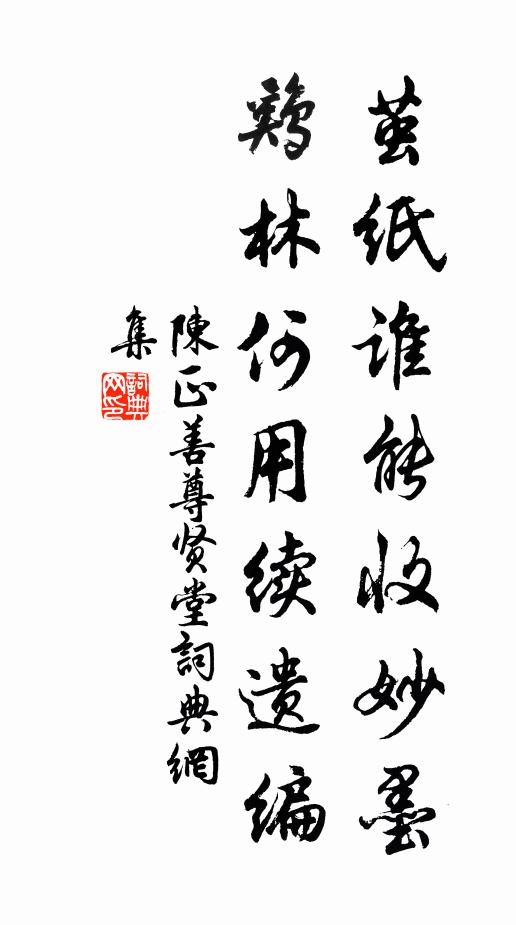 茧纸谁能收妙墨
鸡林何用续遗编
陳正善尊贤堂詞典網
集
詞典
网印